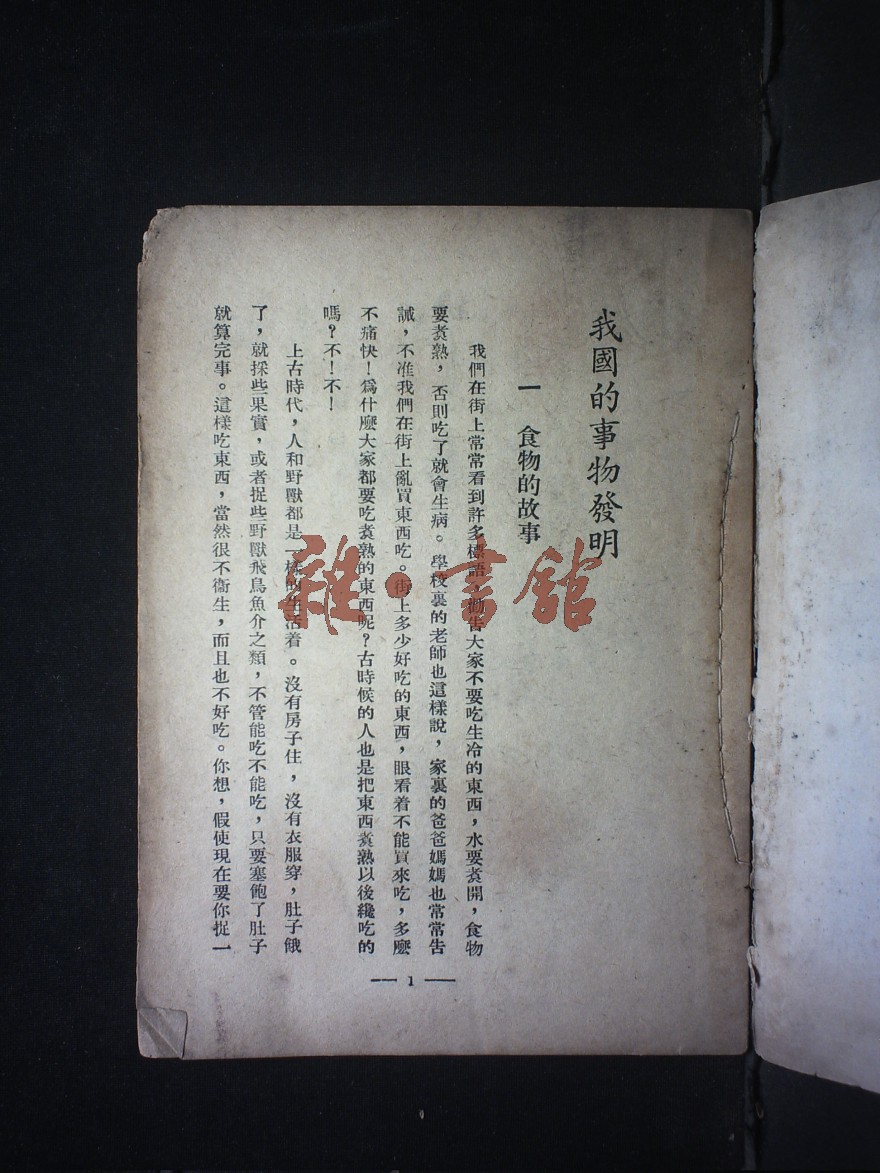 我國的事物發明
一　食物的故事
我們在街上常常看到許多標語，勸告大家不要吃生冷的東西，水要煑開，食物
要煑熟，否則吃了就會生病。學校裏的老師也這樣說，家裏的爸爸媽媽也常常告
誡，不准我們在街上亂買東西吃。街上多少好吃的東西，眼看着不能買來吃，多麽
不痛快！爲什麽大家都要吃煑熟的東西呢？古時候的人也是把東西煑熟以後纔吃的
嗎？不！不！
上古時代，人和野獸都是一樣的生活着。沒有房子住，沒有衣服穿，肚子餓
了，就採些果實，或者捉些野獸飛鳥魚介之類，不管能吃不能吃，只要塞飽了肚子
就算完事。這樣吃東西，當然很不衞生，而且也不好吃。你想，假使現在要你捉一
— 1 —
雜·書館